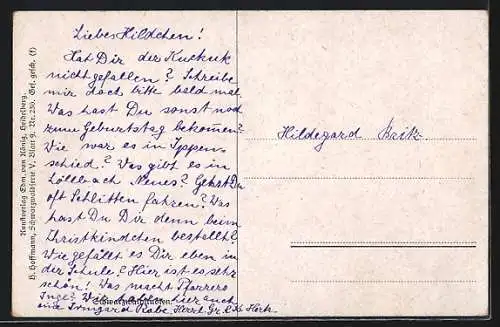 Liebes Hildchen!
Hat Dir der Kuckuk
nicht gefallen? Schreibe
mir doch bitte bald mal.
Was hast Du sonst noch
zum Geburtstag bekommen?
Wie war es in Ippen-
schied? Was gibt es in
Löllbach Neues? Gehst Du
oft Schlitten fahren? Was
hast Du Dir denn beim
Christkindchen bestellt?
Wie gefällt es Dir eben in
der Schule? Hier ist es sehr
schön! Was macht Pfarrers
Inge? Wir haben hier auch
eine Irmgard Rabe. Herzl. Gr.
Hildegard
Kunstverlag Edm. von König, Heidelberg.
H. Hoffmann, Schwarzwaldserie V. Blatt 9. Nr. 230. Ges. gesch. (f)